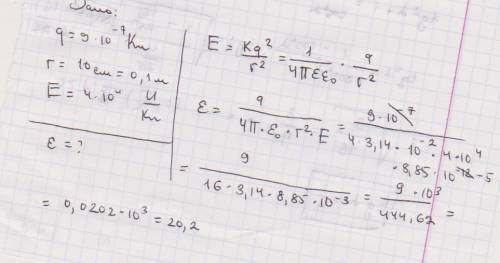 Дано:
q = 9 · 10⁻⁷ Кл
r = 10 см = 0,1 м
E = 4 · 10⁴ Н/Кл
ε = ?
E = Kq²/r² = 1/4πεε₀ · q/r²
ε = q/4π · ε₀ · r² · E = 9 · 10⁻⁷/4 · 3,14 · 10⁻² · 4 · 10⁴ · 8,85 · 10⁻¹² ⁻⁵
= 9/16 · 3,14 · 8,85 · 10⁻³ = 9 · 10³/444,62 =
= 0,0202 · 10³ = 20,2